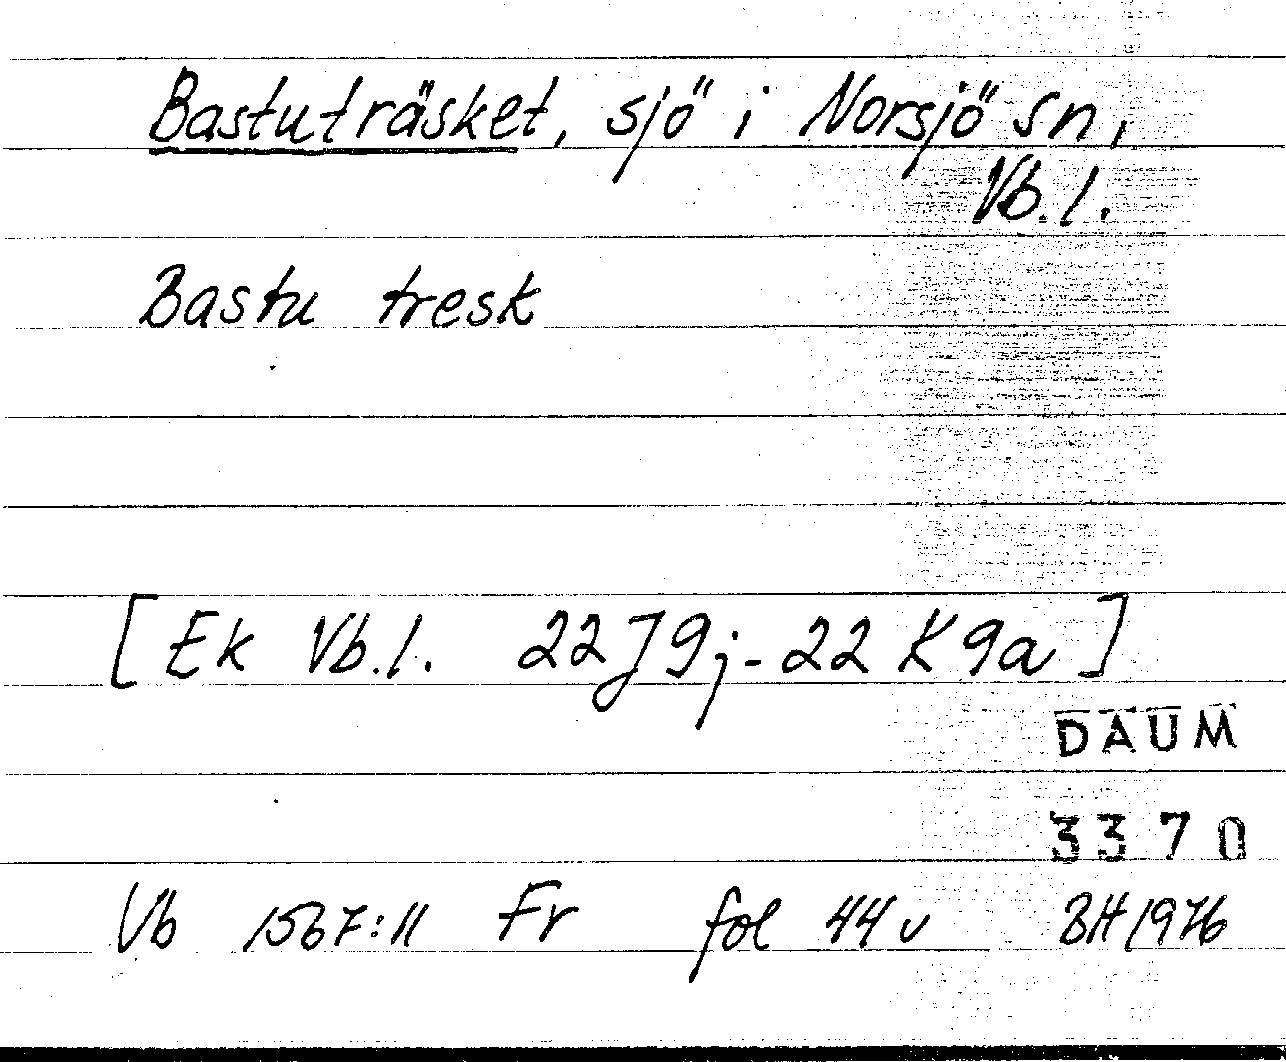 Bastuträsket, sjö i Norsjö sn,
Vb.l.
Bastu tresk
[Ek Vb.l. 22J9j-22K9a]
DAUM
3370
Vb 1567:11 Fr fol 44 v BH 1976